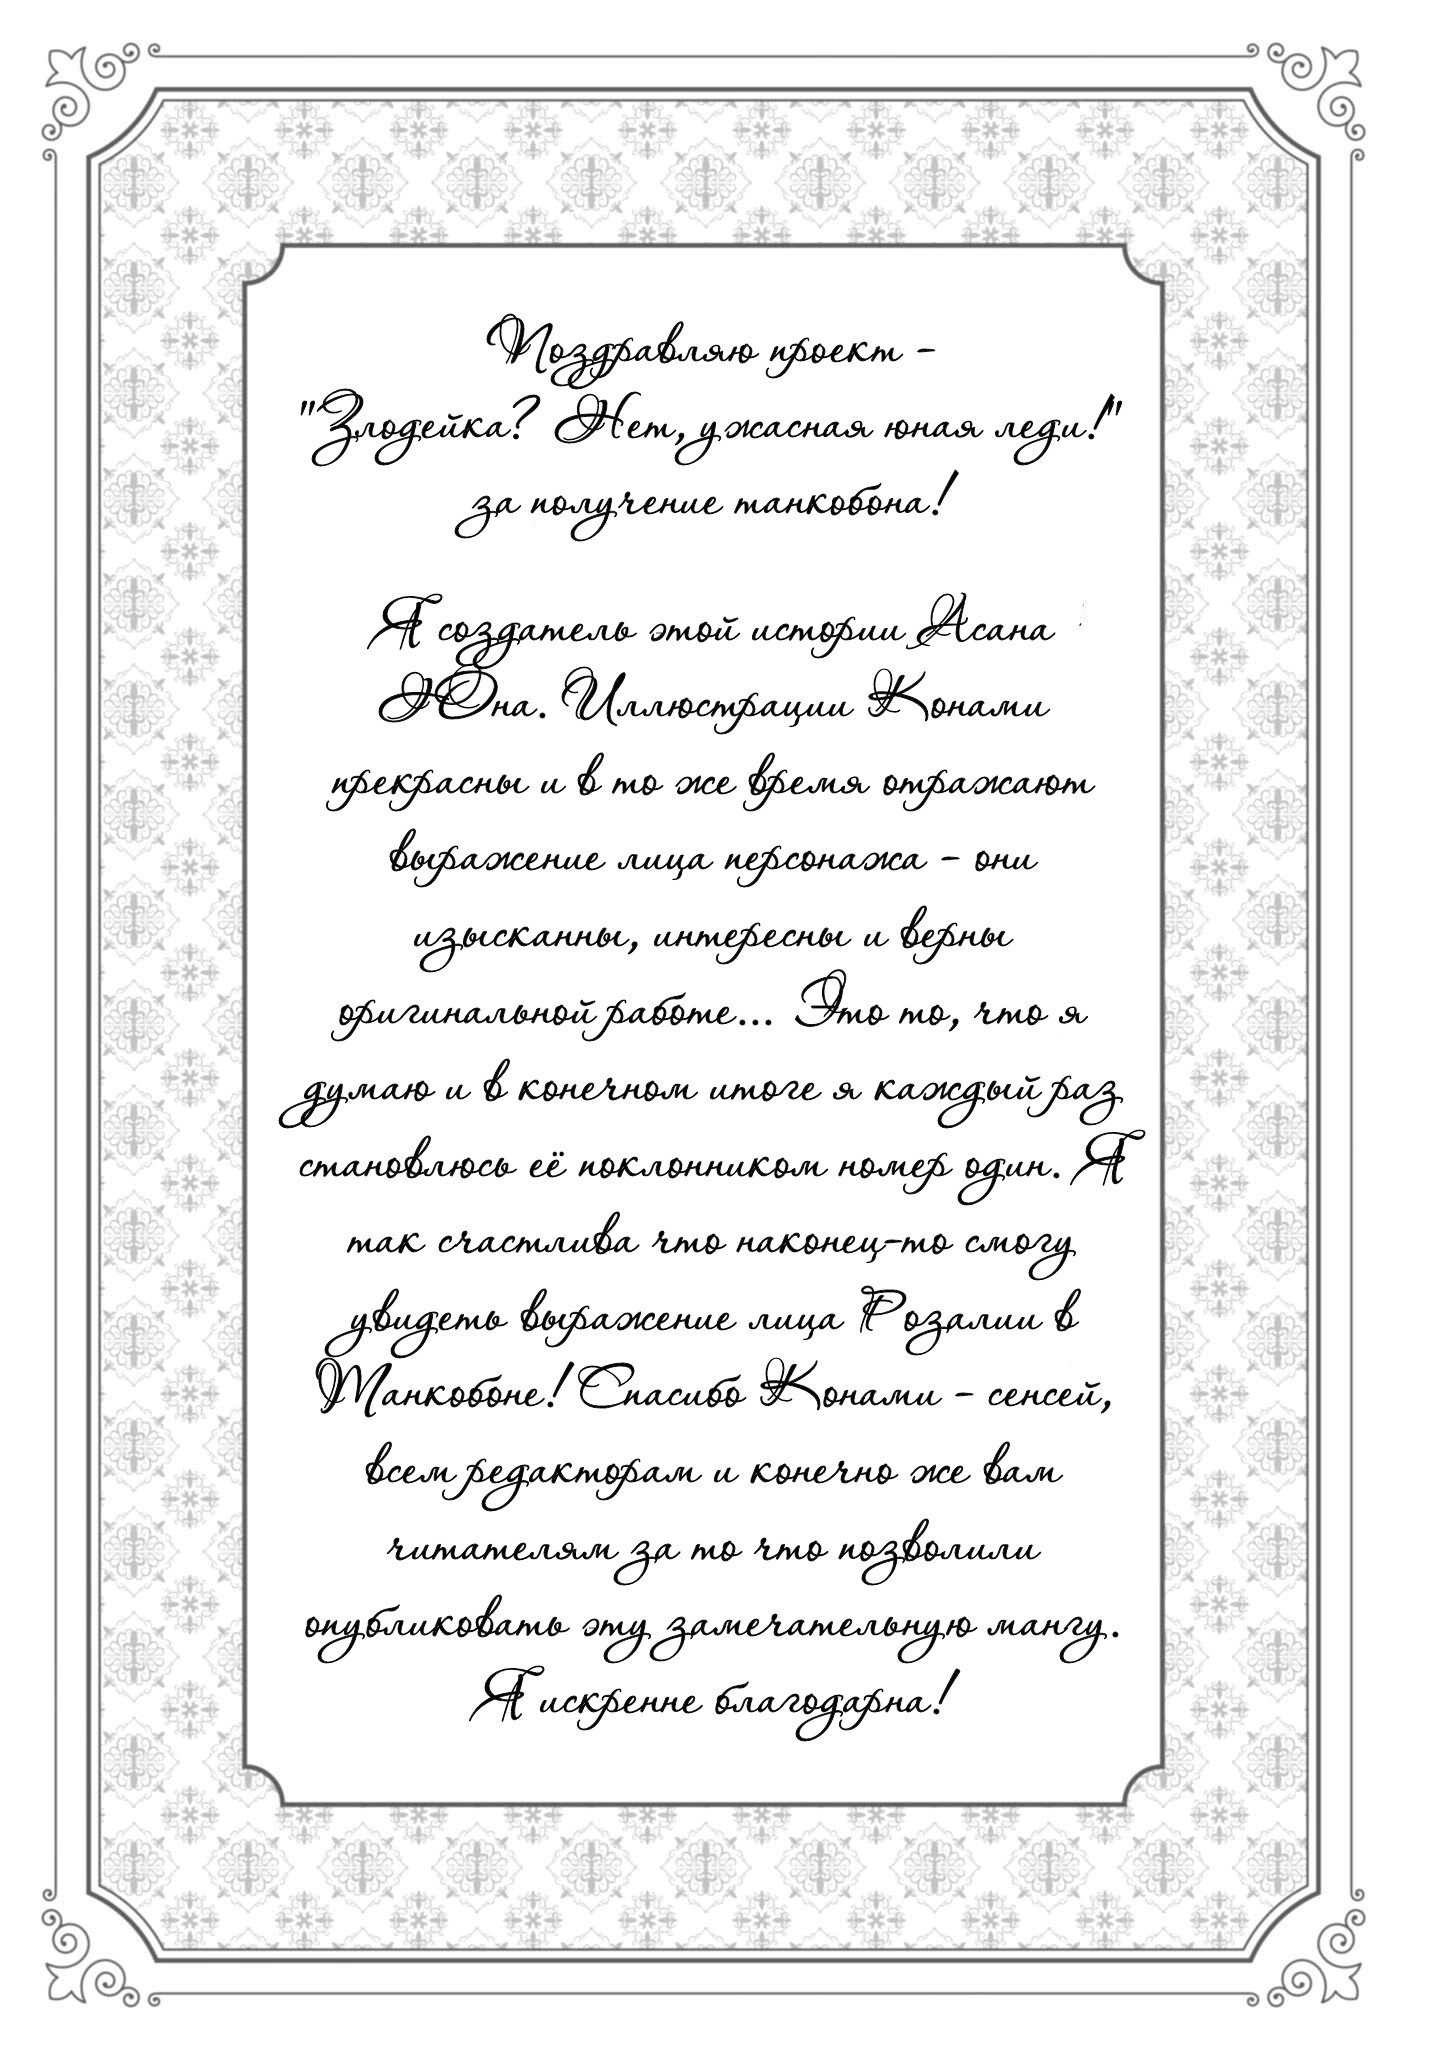 Поздравляю проект -
"Злодейка? Нет, ужасная юная леди!"
за получение танкобона!
Я создатель этой истории Асана
Юна. Иллюстрации Конами
прекрасны и в то же время отражают
выражение лица персонажа - они
изысканны, интересны и верны
оригинальной работе... Это то, что я
думаю и в конечном итоге я каждый раз
становлюсь её поклонником номер один. Я
так счастлива что наконец-то смогу
увидеть выражение лица Розалии в
Танкобоне! Спасибо Конами - сенсей,
всем редакторам и конечно же вам
читателям за то что позволили
опубликовать эту замечательную мангу.
Я искренне благодарна!